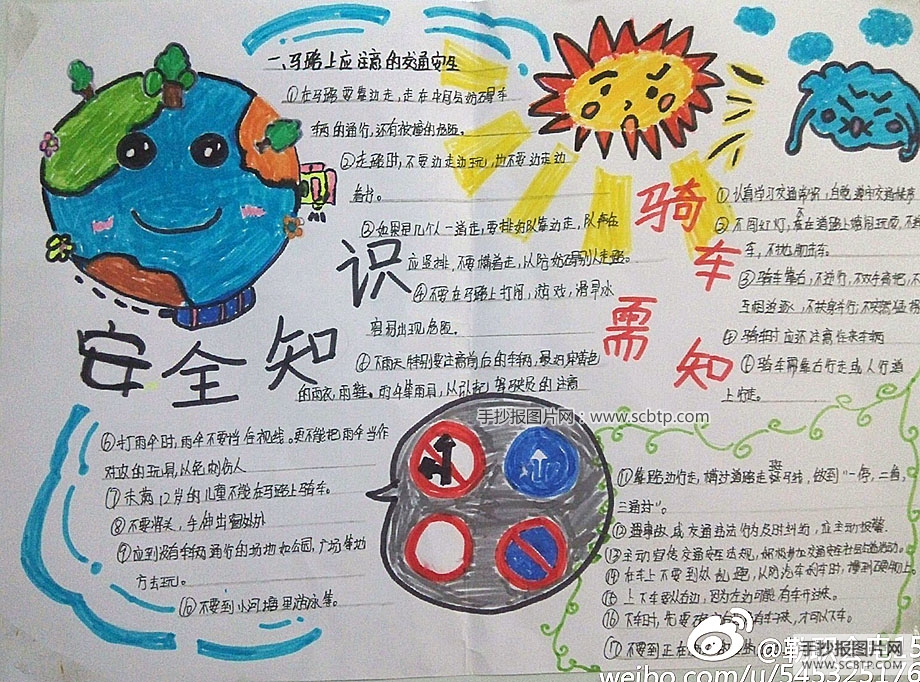 安全知识
一、马路上应注意的交通安全
①在马路要靠边走,走在中间会妨碍车
辆的通行,还有被撞的危险。
②走路时,不要边走边玩,也不要边走边
看书。
③如果是几个人一道走,要排好队靠边走,队伍
应竖排,不要横着走,以防妨碍别人走路。
④不要在马路上打闹,游戏,滑旱冰
容易出现危险。
雨天特别要注意前后的车辆,最好穿黄色
的雨衣,雨鞋。
的注意
⑥打雨伞时,雨伞不要挡住视线。更不能把雨伞当作
对攻的玩具,以免刺伤人
⑦未满12岁的儿童不能在马路上骑车。
⑧不要将头,手伸出窗外
⑨应到没有车辆通行的场地如公园,广场等地
方去玩。
⑩不要到小河塘里游泳等。
骑车需知
①认真学习交通常识,自觉遵守交通秩序
②不闯红灯,不在道路上嬉闹玩耍,不
车,不扒机动车。
③骑车靠右,不逆行,不双手离把,不
互相追逐,不扶肩并行,不突然猛拐
④骑车时应还注意往来车辆
骑车需靠右行走或人行道
上行走。
⑪靠路边行走,横过道路走斑马线,做到"一停,二看,
三通过"。
⑫遇事故,或交通违法行为及时纠劝,应主动报警
⑬主动宣传交通安全法规,积极参加交通安全社会实践活动。
⑭在车上不要到处乱跑,以防汽车刹车时,撞到硬物上。
⑮上下车要从右边,因为左边可能有车开过来。
⑯下车时,先要
有车来,才可以下车。
⑰不要到正在
手抄报图片网:www.scbtp.com
手抄报图片网
WWW.SCBTP.COM
weibo.com/u/545325176